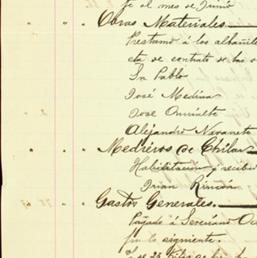 to el mes de Junio
Obras Materiales
Prestamo á los albañiles
cta se contrato de las o
Sn Pablo
José Medina
José
Alejandro Navarrete
Medieros de Chilar
Habilitacion y recibo
Juan Rincón
Gastos Generales
Pagado á Severiano
por lo siguiente.